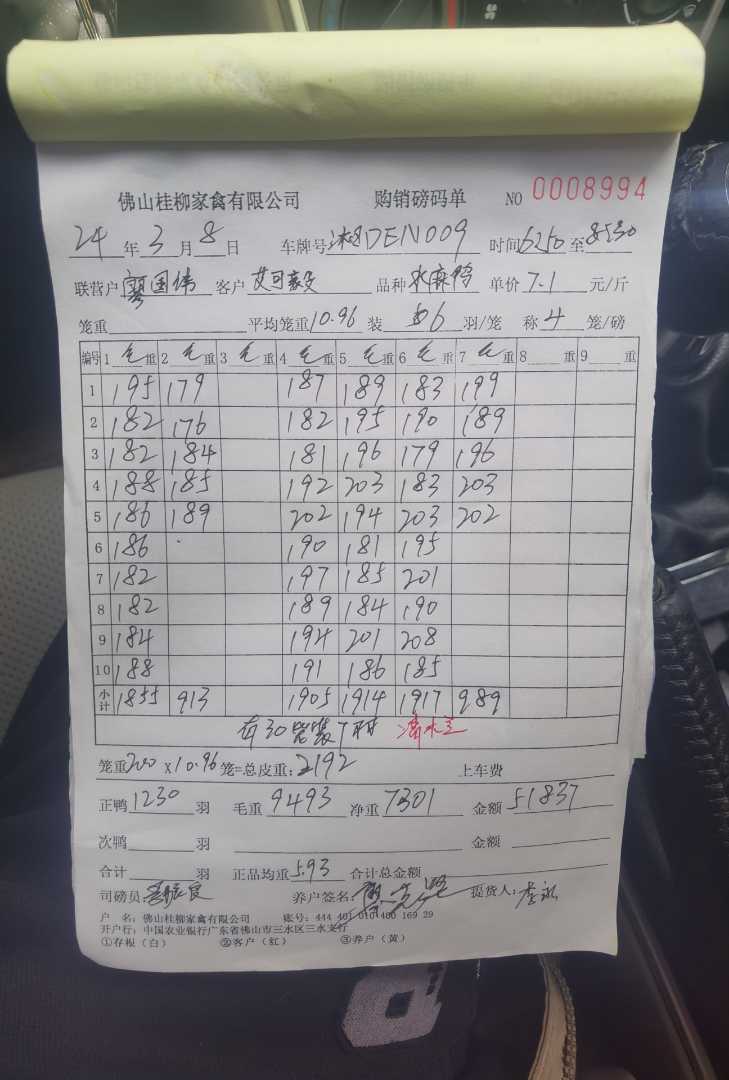 佛山桂柳家禽有限公司 购销磅码单 NO 0008994
24 年 3 月 8 日 车牌号 湘DEN009 时间 至
联营户 廖国伟 客户 品种 水麻鸭 单价 7.1 元/斤
笼重 平均笼重 10.96 装 6 羽/笼 称 4 笼/磅
编号 1 毛重 2 毛重 3 毛重 4 毛重 5 毛重 6 毛重 7 毛重 8 重 9 重
1 195 179 187 189 183 199
2 182 176 182 195 190 189
3 182 184 181 196 179 196
4 188 185 192 203 183 203
5 186 189 202 194 203 202
6 186 190 181 195
7 182 197 185 201
8 182 189 184 190
9 184 194 201 208
10 188 191 186 185
小计 1855 913 1905 1914 1917 989
有30笼装7
笼重 200 X 10.96 笼=总皮重: 2192 上车费
正鸭 1230 羽 毛重 9493 净重 7301 金额 51837
次鸭 羽 金额
合计 羽 正品均重 5.93 合计总金额
司磅员 养户签名: 提货人:
户 名: 佛山桂柳家禽有限公司 账号: 444 401 010 400 169 29
开户行: 中国农业银行广东省佛山市三水区三水支行
①存根(白) ②客户(红) ③养户(黄)